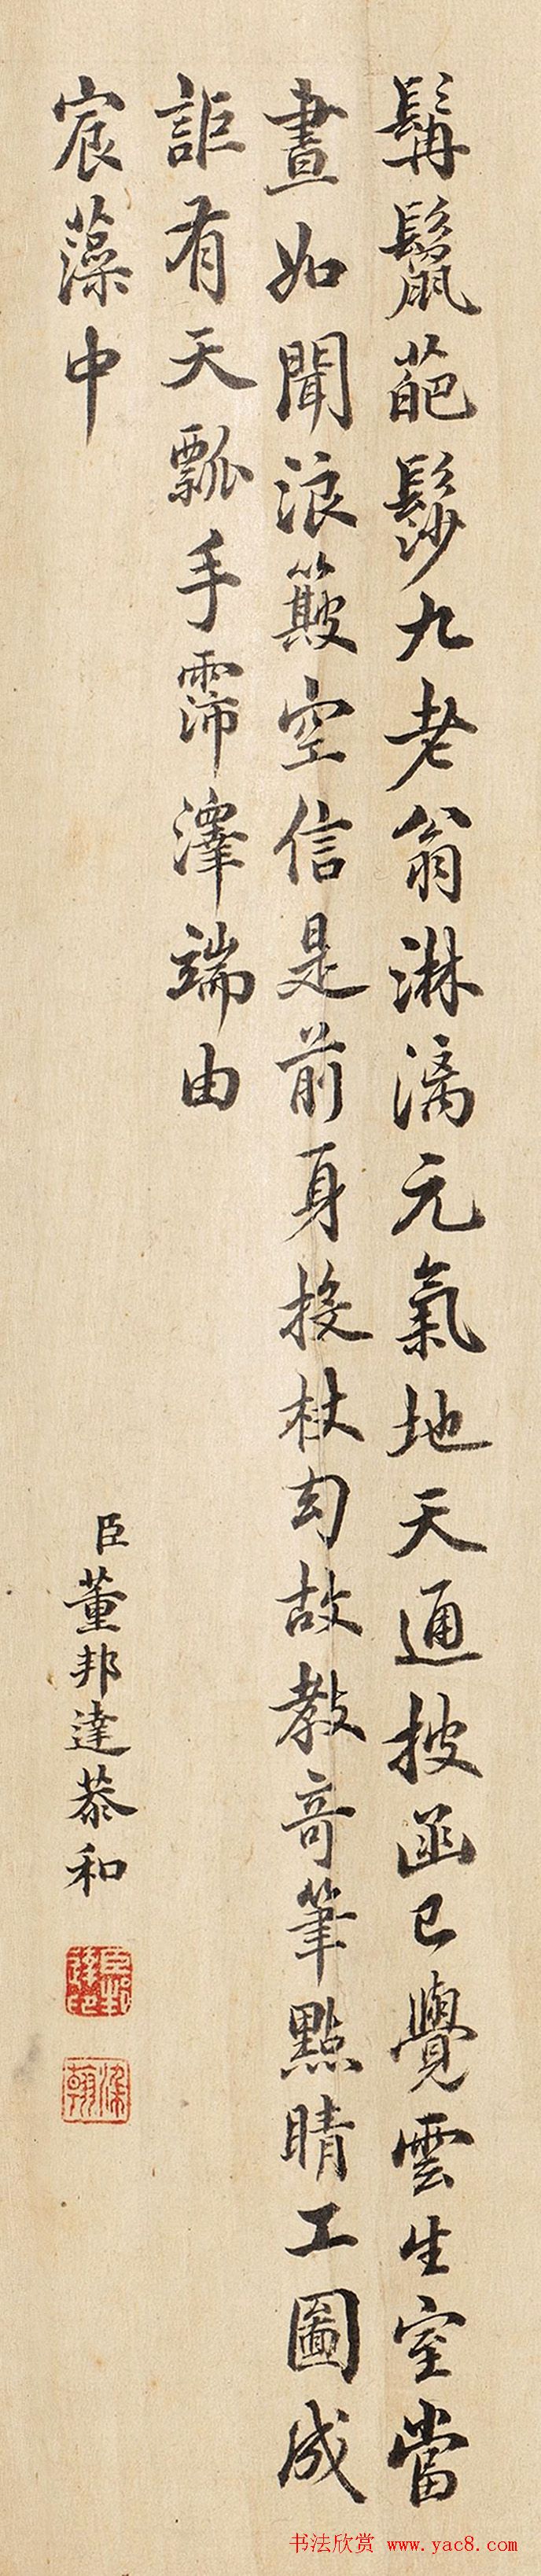 髯鬣葩髿九老翁淋漓元氣地天通披函已覺雲生室當
晝如聞浪簸空信是前身投杖勾故教奇筆點睛工圖成
詎有天瓢手霈澤端由
宸藻中
臣董邦達恭和
书法欣赏 www.yac8.com